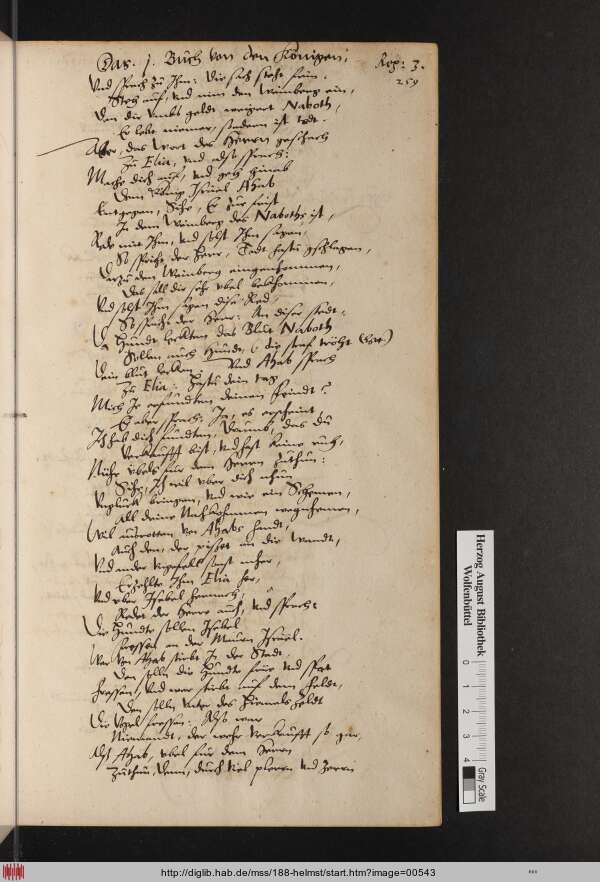 Das. j. Buch von den Königen. Cap: 3.
259
Und sprach zu Ihm: die sach steht fein.
Steh auf, und nim den Weinberg ein,
Den dir umbs geldt weigert Naboth,
Er lebt nimmer, sondern ist todt.
Aber, das Wort des Herren geschach
Zu Elia, und also sprach:
Mache dich auf, und geh hinab
Dem König Israel Ahab
Entgegen, Sihe, Er
In dem Weinberg des Naboths ist,
Rede mit Ihm, und solst Ihm sagen,
So spricht der Herr, Todt hastu gschlagen,
Darzu den Weinberg eingenhommen,
Das soll dir sehr übel bekhommen,
Und solst Ihm sagen dise Red,
So spricht der Herr: An diser stedt,
Da Hundt leckten das Blut Naboth
Sollen auch Hunde, (die straf dröht Gott)
Dein blut lecken. Und Ahab sprach
Zu Elia: Hastu dein tag
Mich Je erfundten deinen feindt?
Er aber sprach: Ja, es erscheint,
Ich hab dich fundten, Drumb, das du
Verkaufft bist, und hast keine ruh,
Nuhr übels für dem Herren zuthun:
Sihe, Ich wil über dich nhun
Unglück bringen, und wie ein
All deine Nachkhommen wegnhemen,
Wil ausrotten von Ahabs handt,
Auch den, der pisset an die Wandt,
Und ander ungefell sonst mher,
Erzehlte Ihm Elia her,
Und über Isabel hernach,
Redet der Herr auch, und sprach:
Die Hundte sollen Isabel
fressen an der Mauren Israel.
Wer von Ahab stirbt In der Stadt
Den sollen die Hundte frue und spat
fressen, und wer stirbt auf dem feldt,
Den sollen unter des Himmels Zeldt
Die Vögel fressen: Also war
Niemandt, der wehr verkaufft so gar,
Als Ahab, übel für dem Herrn
Zuthun, denn, durch viel und
Herzog August Bibliothek
Wolfenbüttel
0 1 2 3 4
Gray Scale
http://diglib.hab.de/mss/188-helmst/start.htm?image=00543